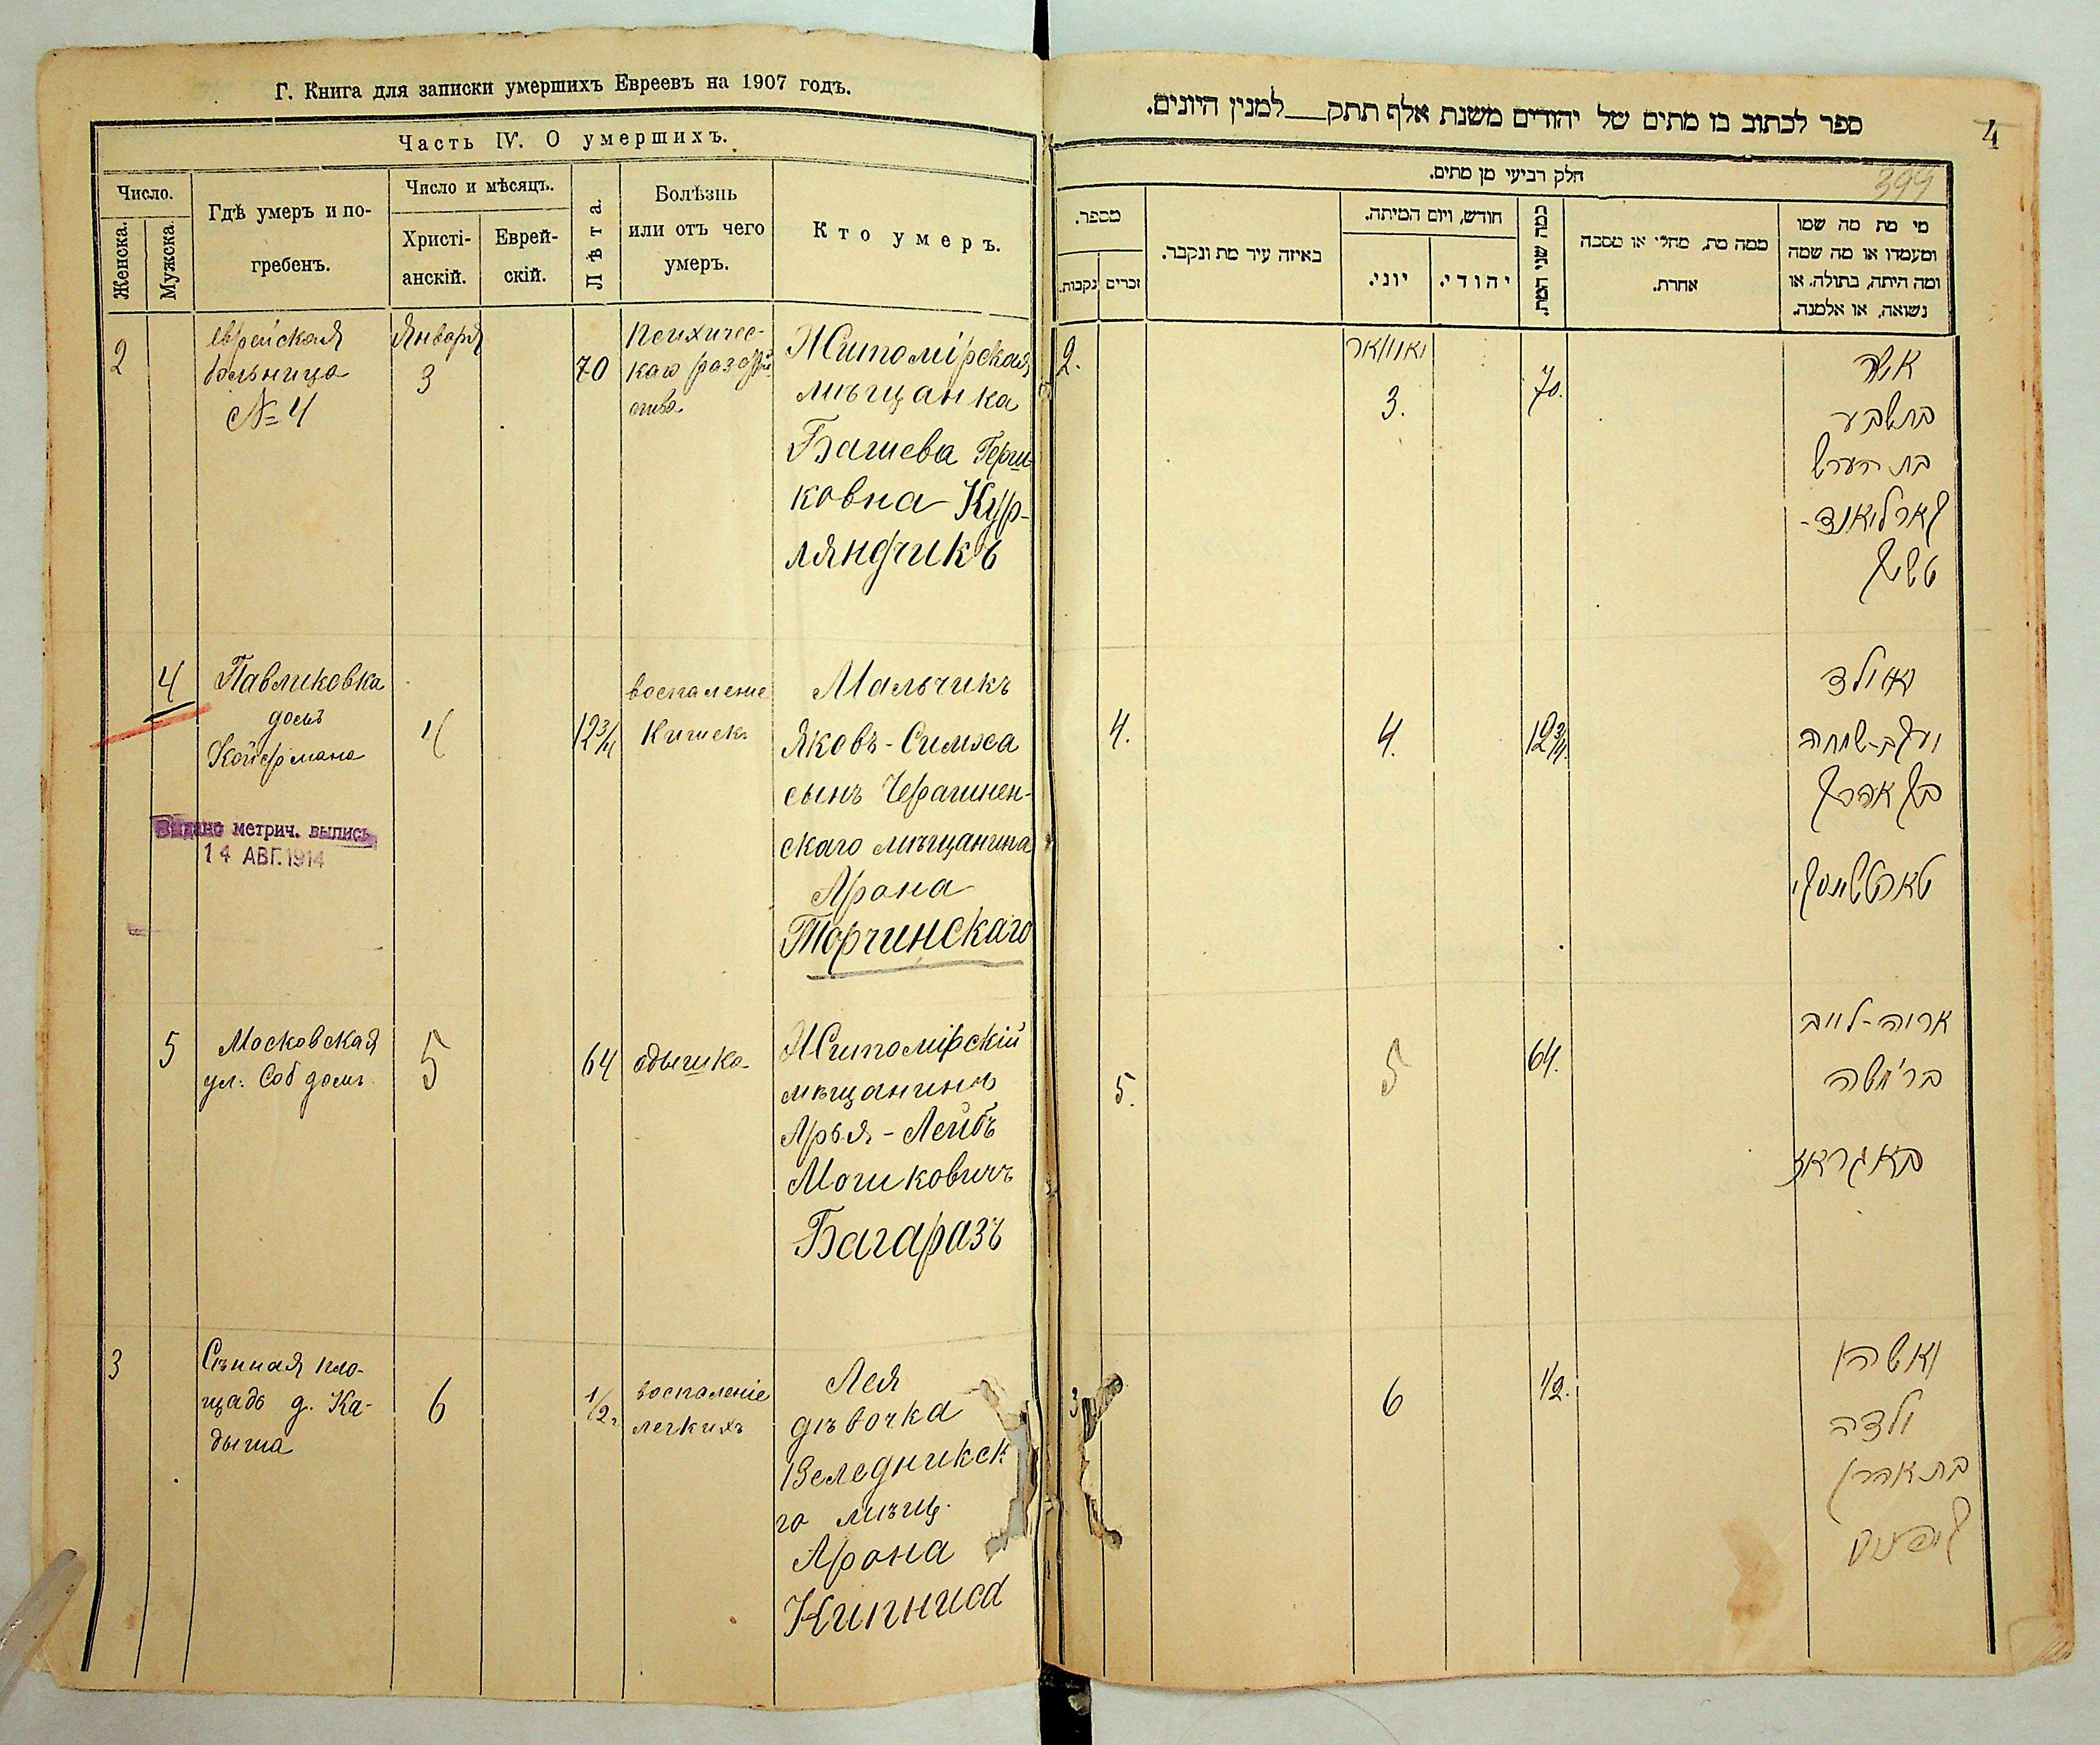 Г. Книга для записки умершихъ Евреевъ на 1907 годъ.
Часть IV. О умершихъ.
Число.
Женска.
Мужска.
Гдѣ умеръ и по-
гребенъ.
Число и мѣсяцъ.
Христі-
анскій.
Еврей-
скій.
Лѣта.
Болѣзнь
или отъ чего
умеръ.
Кто умеръ.
2
еврейская
больница
№ 4
Января
3
70
психичес-
каго разстрой
ства
Житомірская
мѣщанка
Башева Герш-
ковна Кур-
ляндчикъ
4
Павликовка
домъ
Койфмана
4
12 3/4
воспаление
Кишек
Мальчикъ
Яковъ-Симха
сынъ
скаго мѣщанина
Арона
Торчинскаго
Выдано метрич. выпись
14 АВГ. 1914
5
Московская
ул. Соб домъ
5
64
одышка
Житомірскій
мѣщанинъ
Арья-Лейбъ
Мошковичъ
Багаразъ
3
Сѣнная пло-
щадь д. Ка-
дыша
6
1/2 г.
воспаленіе
легкихъ
Лея
дѣвочка
Веледникск
го мѣщ.
Арона
Кипниса
ספר לכתוב בו מתים של יהודים משנת אלף תתק___למנין היונים.
4
399
חלק רביעי מן מתים.
מספר.
נקבות.
זכרים
באיזה עיר מת ונקבר.
חודש, ויום המיתה.
יוני.
יהודי.
כמה שני המת.
ממה מת, מחלי או מסבה
אחרת.
מי מת מה שמו
ומעמדו או מה שמה
ומה היתה, בתולה. או
נשואה, או אלמנה.
2.
יאנואר
3.
70.
אשה
בתשבע
בת הערש
קארליאנד-
טשיק
4.
4.
12 3/4.
הילד
יעקב-שמחה
בן אהרן
טארטשינסקי
5.
5
64.
אריה-לייב
בר' משה
באגראז
3
6
1/2.
ילדה
בת אהרן
קיפניס